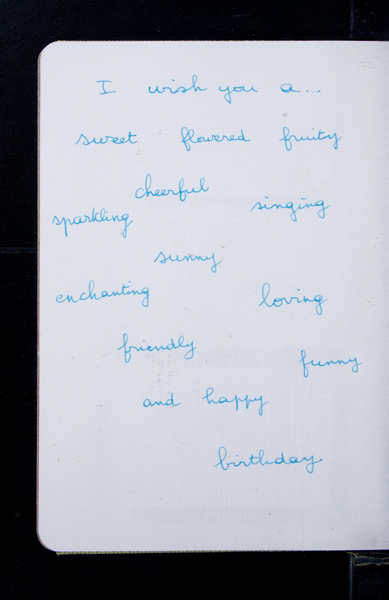 I wish you a...
sweet flowered fruity
cheerful
sparkling singing
sunny
enchanting loving
friendly
funny
and happy
birthday